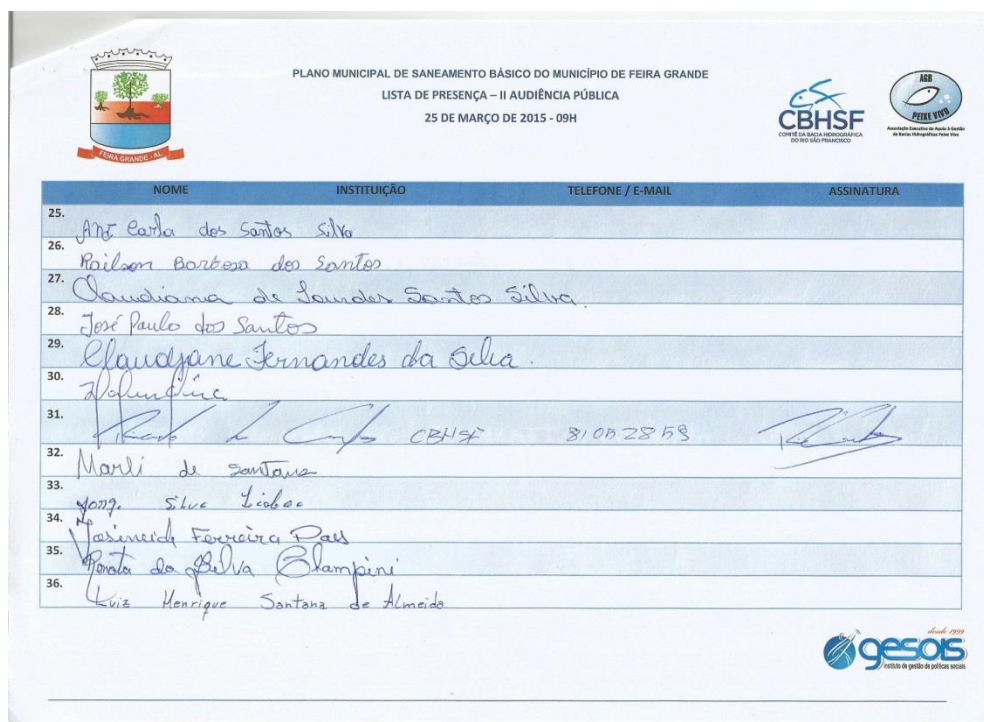 PLANO MUNICIPAL DE SANEAMENTO BÁSICO DO MUNICÍPIO DE FEIRA GRANDE
LISTA DE PRESENÇA – II AUDIÊNCIA PÚBLICA
25 DE MARÇO DE 2015 - 09H
FEIRA GRANDE - AL
CBHSF
COMITÊ DA BACIA HIDROGRÁFICA
DO RIO SÃO FRANCISCO
AGB
PEIXE VIVO
Associação Executiva de Apoio à Gestão
de Bacias Hidrográficas Peixe Vivo
NOME INSTITUIÇÃO TELEFONE / E-MAIL ASSINATURA
25. Ana Carla dos Santos Silva
26. Railson Barbosa dos Santos
27. Claudiana de Lourdes Santos Silva.
28. José Paulo dos Santos
29. Claudjane Fernandes da Silva.
30.
31. CBHSF
32. Marli de Santana
33. Silva
34. Josineide Ferreira Paes
35. Renata da Silva Champini
36. Luiz Henrique Santana de Almeida
desde 1999
gesois
instituto de gestão de políticas sociais